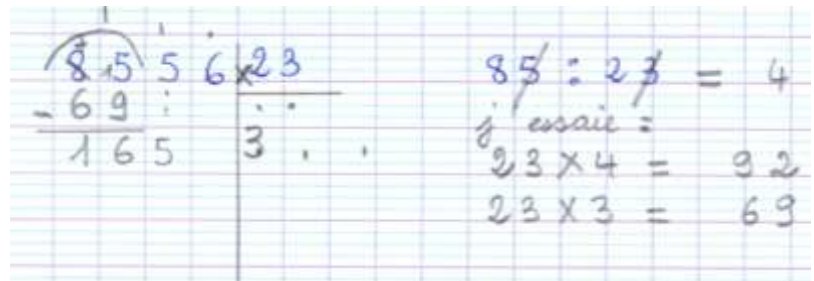 8556 23
- 69
165 3 . .
85 : 23 = 4
j'essaie :
23 × 4 = 92
23 × 3 = 69